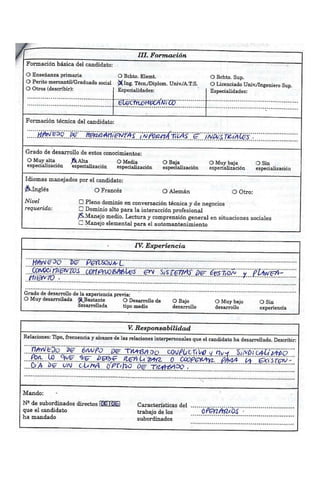 III. Formación
Formación básica del candidato:
O Enseñanza primaria O Bchto. Elemt. O Bchto. Sup.
O Perito mercantil/Graduado social X Ing. Técn./Diplom. Univ./A.T.S. O Licenciado Univ./Ingeniero Sup.
O Otros (describir): Especialidades: Especialidades:
ELECTROMECÁNICO
Formación técnica del candidato:
MANEJO DE HERRAMIENTAS INFORMÁTICAS E INDUSTRIALES.
Grado de desarrollo de estos conocimientos:
O Muy alta especialización X Alta especialización O Media especialización O Baja especialización O Muy bajo especialización O Sin especialización
Idiomas manejados por el candidato:
X Inglés O Francés O Alemán O Otro:
Nivel requerido:
□ Pleno dominio en conversación técnica y de negocios
□ Dominio alto para la interacción profesional
X Manejo medio. Lectura y comprensión general en situaciones sociales
□ Manejo elemental para el automantenimiento
IV. Experiencia
MANEJO DE PERSONAL
CONOCIMIENTOS COMPROBABLES EN SISTEMAS DE GESTIÓN y PLANEA-
MIENTO.
Grado de desarrollo de la experiencia previa:
O Muy desarrollada X Bastante desarrollada O Desarrollo de tipo medio O Bajo desarrollo O Muy bajo desarrollo O Sin experiencia
V. Responsabilidad
Relaciones: Tipo, frecuencia y alcance de las relaciones interpersonales que el candidato ha desarrollado. Describir:
MANEJO DE GRUPO DE TRABAJO CONFLICTIVO y MUY SINDICALIZADO
POR LO QUE SE DEBE REALIZAR O COOPERAR PARA LA EXISTEN-
CIA DE UN CLIMA OPTIMO DE TRABAJO.
Mando:
Nº de subordinados directos que el candidato ha mandado
Características del trabajo de los subordinados
OPERARIOS.